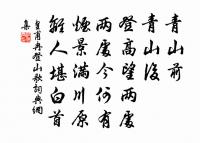 青山前
青山後
登高望兩處
兩處今何有
煙景滿川原
離人堪白首
皇甫冉登山歌詞典網
集